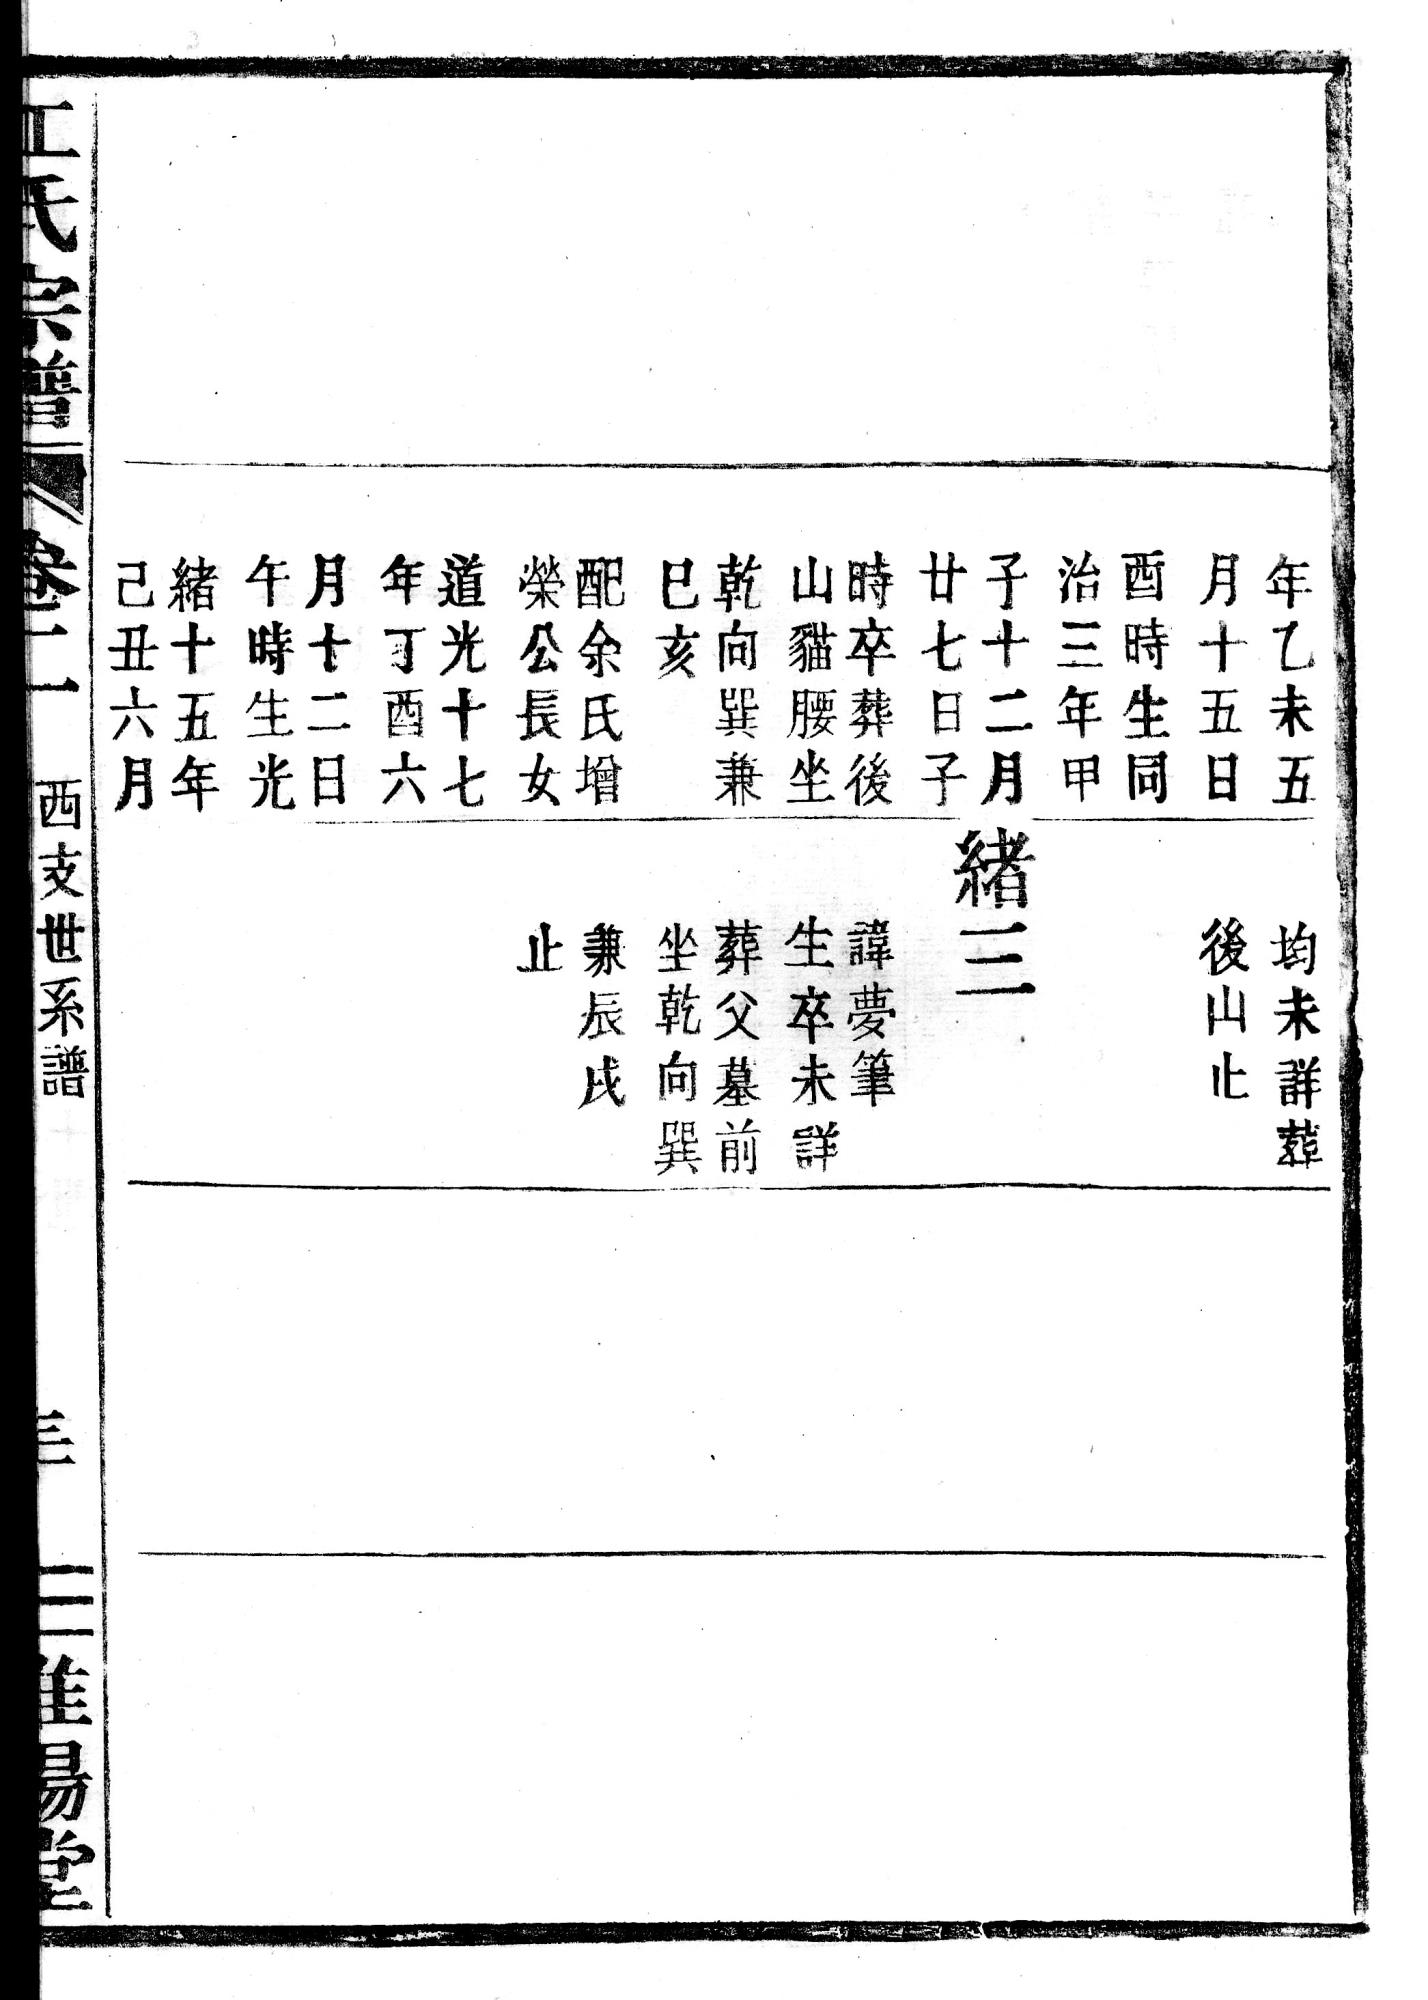 年乙未五
月十五日
酉時生同
治三年甲
子十二月
廿七日子
時卒葬後
山貓腰坐
乾向巽兼
巳亥
配余氏增
榮公長女
道光十七
年丁酉六
月十二日
午時生光
緒十五年
己丑六月
均未詳葬
後山止
緒三
諱夢筆
生卒未詳
葬父墓前
坐乾向巽
兼辰戌
止
江氏宗譜
卷二
西支世系譜
三
淮陽堂